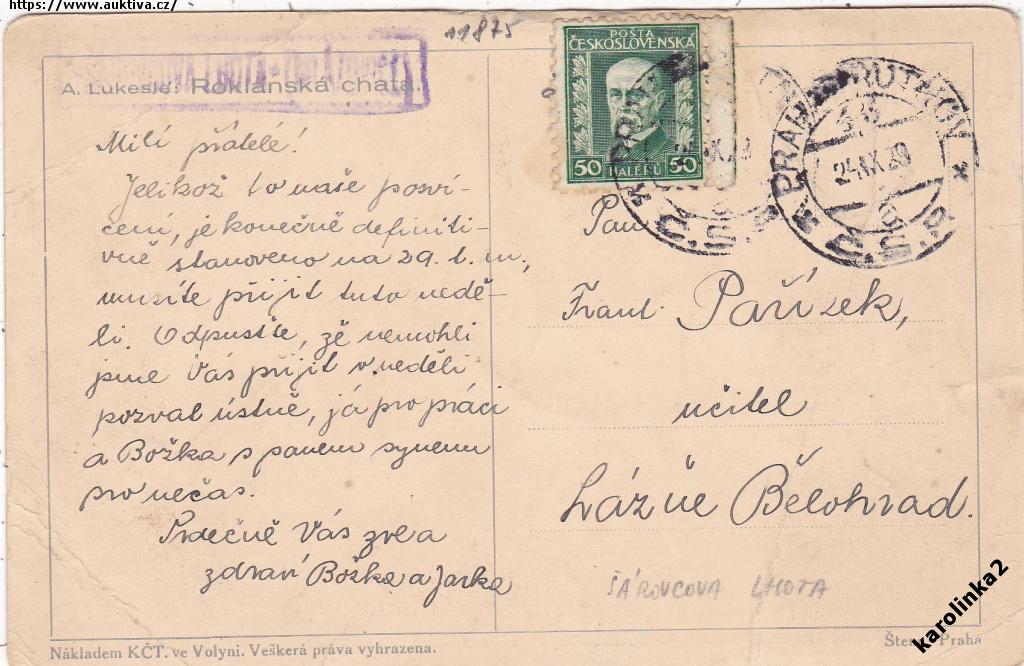 https://www.auktiva.cz/
11875
A. Lukesle: Roklanská chata.
POSTA
ČESKOSLOVENSKÁ
50 HALÉŘŮ 50
24.IX.29
Milí přátelé!
Jelikož to naše posví-
cení, je konečně definiti-
vně stanoveno na 29. t. m.,
musíte přijít tuto nedě-
li. Odpusťte, zě nemohli
jsme Vás přijít v neděli
pozvat ústně, já pro práci
a Božka s panem synem
pro nečas.
Srdečně Vás zve a
zdraví Božka a Jarka
Pan
Frant. Pařízek,
učitel
Lázně Bělohrad.
ŠÁROVCOVA LHOTA
Nákladem KČT. ve Volyni. Veškerá práva vyhrazena.
Praha
karolinka2